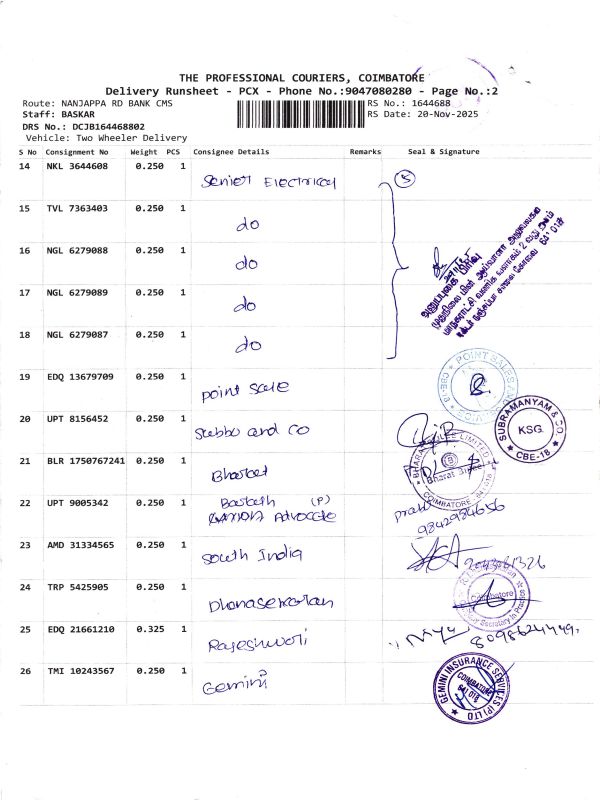 THE PROFESSIONAL COURIERS, COIMBATORE
Delivery Runsheet - PCX - Phone No.:9047080280 - Page No.:2
Route: NANJAPPA RD BANK CMS RS No.: 1644688
Staff: BASKAR RS Date: 20-Nov-2025
DRS No.: DCJB164468802
Vehicle: Two Wheeler Delivery
S No Consignment No Weight PCS Consignee Details Remarks Seal & Signature
14 NKL 3644608 0.250 1 Senior Electrical 5
15 TVL 7363403 0.250 1 do
16 NGL 6279088 0.250 1 do
17 NGL 6279089 0.250 1 do
18 NGL 6279087 0.250 1 do
19 EDQ 13679709 0.250 1 point Sale
POINT SALES
20 UPT 8156452 0.250 1 Subbu and Co
SUBRAMANYAM & CO. KSG. CBE-18
21 BLR 1750767241 0.250 1 Bharat
LIMITED COIMBATORE
22 UPT 9005342 0.250 1 (P)
Advocate
9842984656
23 AMD 31334565 0.250 1 South India
24 TRP 5425905 0.250 1 Dhanasekaran
Coimbatore Secretary in Practice
25 EDQ 21661210 0.325 1 Rajeshwari
26 TMI 10243567 0.250 1 Gemini
GEMINI INSURANCE SERVICES (P) LTD COIMBATORE 641 018